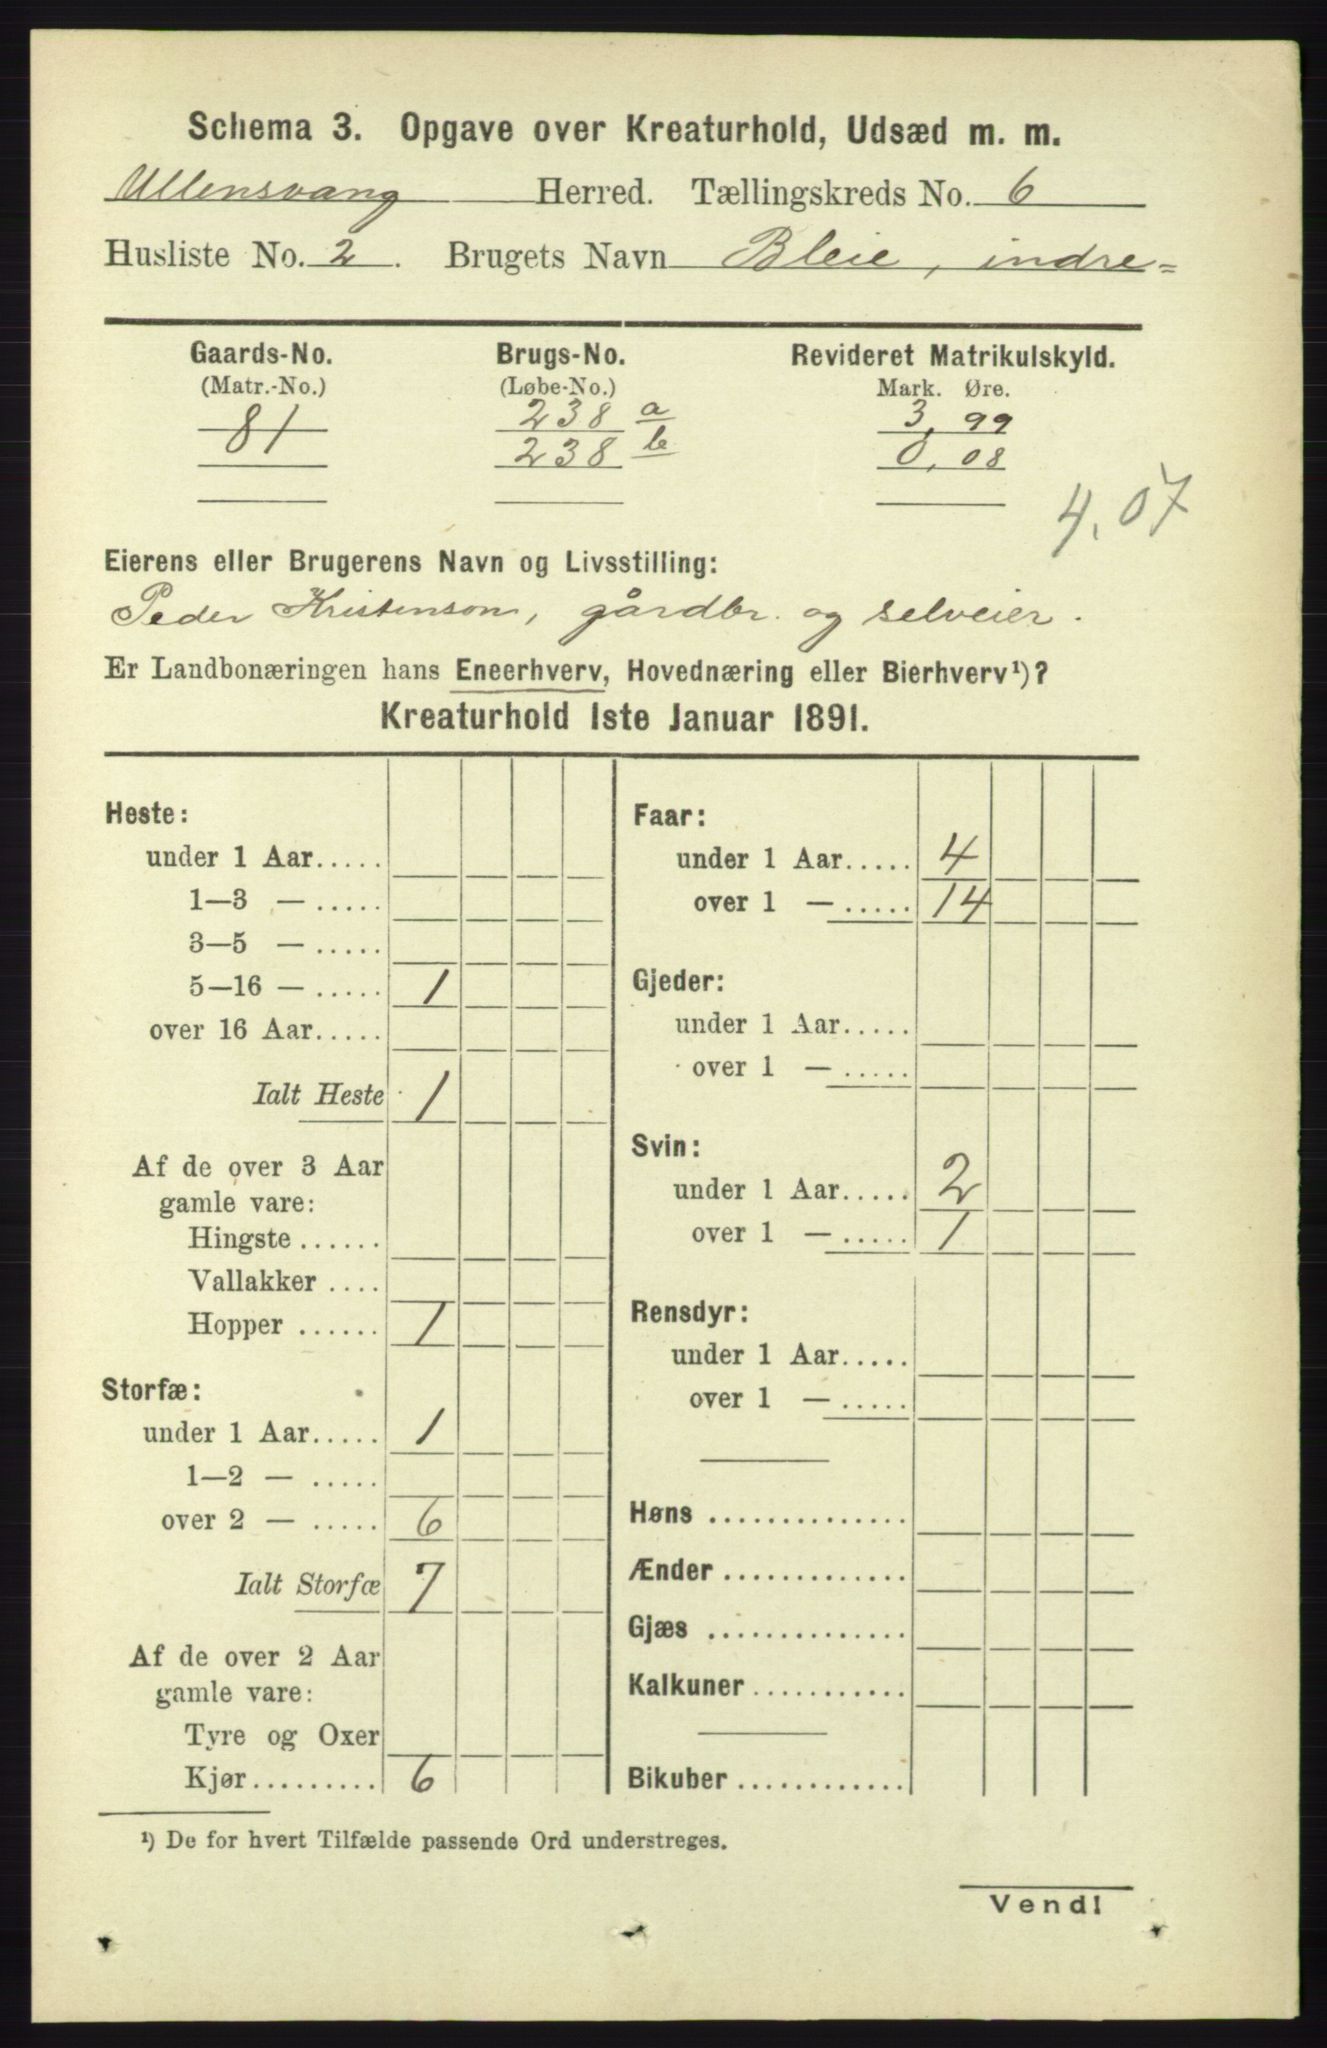 Schema 3. Opgave over Kreaturhold, Udsæd m. m.
Ullensvang Herred. Tællingskreds No. 6
Husliste No. 2. Brugets Navn Bleie, indre
Gaards-No. Brugs-No. Revideret Matrikulskyld.
(Matr.-No.) (Løbe-No.) Mark. Øre.
81 238 a 3,99
238 b 0,08
4,07
Eierens eller Brugerens Navn og Livsstilling:
Peder Kristenson, gårdbr. og selveier.
Er Landbonæringen hans Eneerhverv, Hovednæring eller Bierhverv¹)?
Kreaturhold 1ste Januar 1891.
Heste:
under 1 Aar.....
1—3 — .....
3—5 — .....
5—16 — ..... 1
over 16 Aar.....
Ialt Heste 1
Af de over 3 Aar
gamle vare:
Hingste ......
Vallakker ....
Hopper ...... 1
Storfæ:
under 1 Aar..... 1
1—2 — .....
over 2 — ..... 6
Ialt Storfæ 7
Af de over 2 Aar
gamle vare:
Tyre og Oxer
Kjør......... 6
Faar:
under 1 Aar..... 4
over 1 — ..... 14
Gjeder:
under 1 Aar.....
over 1 — .....
Svin:
under 1 Aar..... 2
over 1 — ..... 1
Rensdyr:
under 1 Aar.....
over 1 — .....
Høns ..............
Ænder .............
Gjæs ..............
Kalkuner...........
Bikuber ............
¹) De for hvert Tilfælde passende Ord understreges.
Vend!